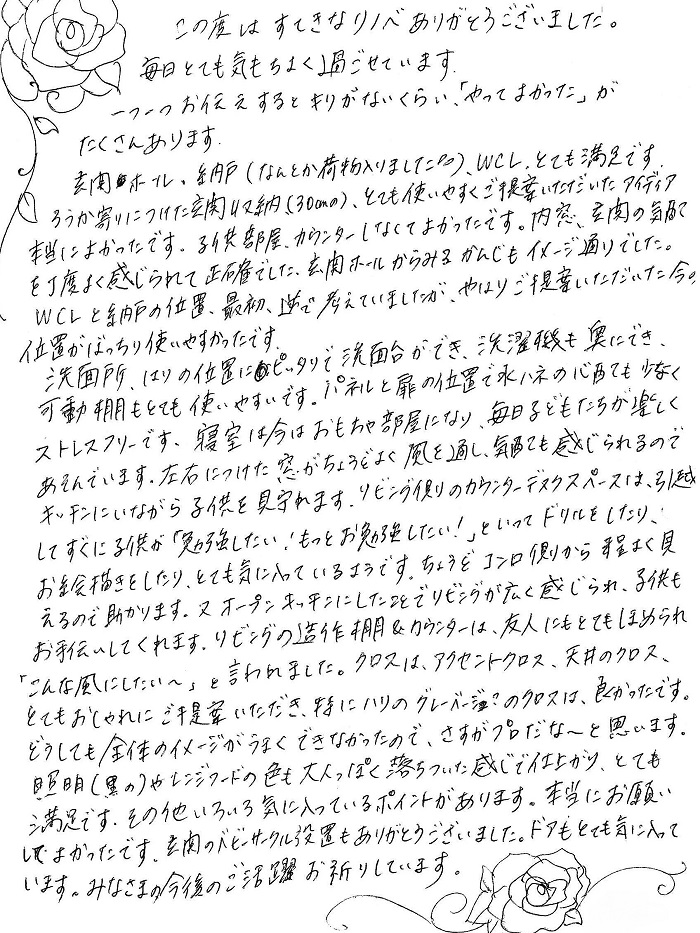 この度は すてきなリノベ ありがとうございました。
毎日とても気もちよく過ごせています。
一つ一つお伝えするとキリがないくらい、「やってよかった」が
たくさんあります。
玄関ホール、納戸(なんとか荷物入りました^^)、WCL、とても満足です。
ろうか寄りにつけた玄関収納、(30cmの)、とても使いやすくご提案いただいたアイディア
本当によかったです。子供部屋、カウンターしなくてよかったです。内窓、玄関の気配
を丁度よく感じられて正確でした、玄関ホールからみるかんじもイメージ通りでした。
WCLと納戸の位置、最初、逆で考えていましたが、やはりご提案いただいた今の
位置がばっちり使いやすかったです。
洗面所、はりの位置にピッタリで洗面台ができ、洗濯機も奥にでき、
可動棚もとても使いやすいです。パネルと扉の位置で水ハネの心配も少なく
ストレスフリーです、寝室は今はおもちゃ部屋になり、毎日子どもたちが楽しく
あそんでいます。左右につけた窓がちょうどよく風を通し、気配も感じられるので
キッチンにいながら子供を見守れます。リビング側のカウンターデスクスペースは、引越
してすぐに子供が「勉強したい!もっとお勉強したい!」といってドリルをしたり、
お絵描きをしたり、とても気に入っているようです。ちょうどコンロ側から程よく見
えるので助かります。又オープンキッチンにしたことでリビングが広く感じられ、子供も
お手伝いしてくれます。リビングの造作棚&カウンターは、友人にもとてもほめられ
「こんな風にしたい〜」と言われました。クロスは、アクセントクロス、天井のクロス、
とてもおしゃれにご提案いただき、特にハリのグレーベージュ?のクロスは、良かったです。
どうしても全体のイメージがうまくできなかったので、さすがプロだな〜と思います。
照明(黒の)やレンジフードの色も大人っぽく落ちついた感じで仕上がり、とても
満足です。その他いろいろ気に入っているポイントがあります。本当にお願い
してよかったです、玄関のベビーサークル設置もありがとうございました。ドアもとても気に入って
います。みなさまの今後のご活躍お祈りしています。